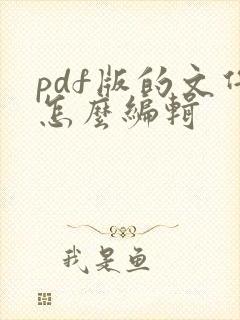 pdf版的文件
怎麼編輯
我是鱼